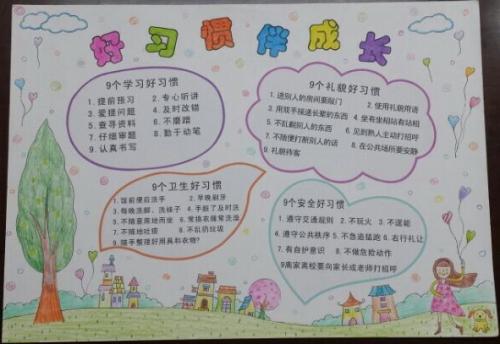 好习惯伴成长
9个学习好习惯
1. 提前预习 2. 专心听讲
3. 爱提问题 4. 及时改错
5. 查寻资料 6. 不磨蹭
7. 仔细审题 8. 勤于动笔
9. 认真书写
9个礼貌好习惯
1. 进别人的房间要敲门 2. 使用礼貌用语
3. 用双手接递长辈的东西 4. 坐有坐相站有站相
5. 不乱翻别人的东西 6. 见到熟人主动打招呼
7. 不随便打断别人的话 8. 在公共场所要安静
9. 礼貌待客
9个卫生好习惯
1. 饭前便后洗手 2. 早晚刷牙
3. 每晚洗脚、洗袜子 4. 手脏了及时洗
5. 不随意席地而坐 6. 常换衣服常洗澡
7. 不随地吐痰 8. 不乱扔垃圾
9. 随手整理好用具和衣物?
9个安全好习惯
1. 遵守交通规则 2. 不玩火 3. 不逞能
4. 遵守公共秩序 5. 不急追猛跑 6. 右行礼让
7. 有自护意识 8. 不做危险动作
9离家离校要向家长或老师打招呼